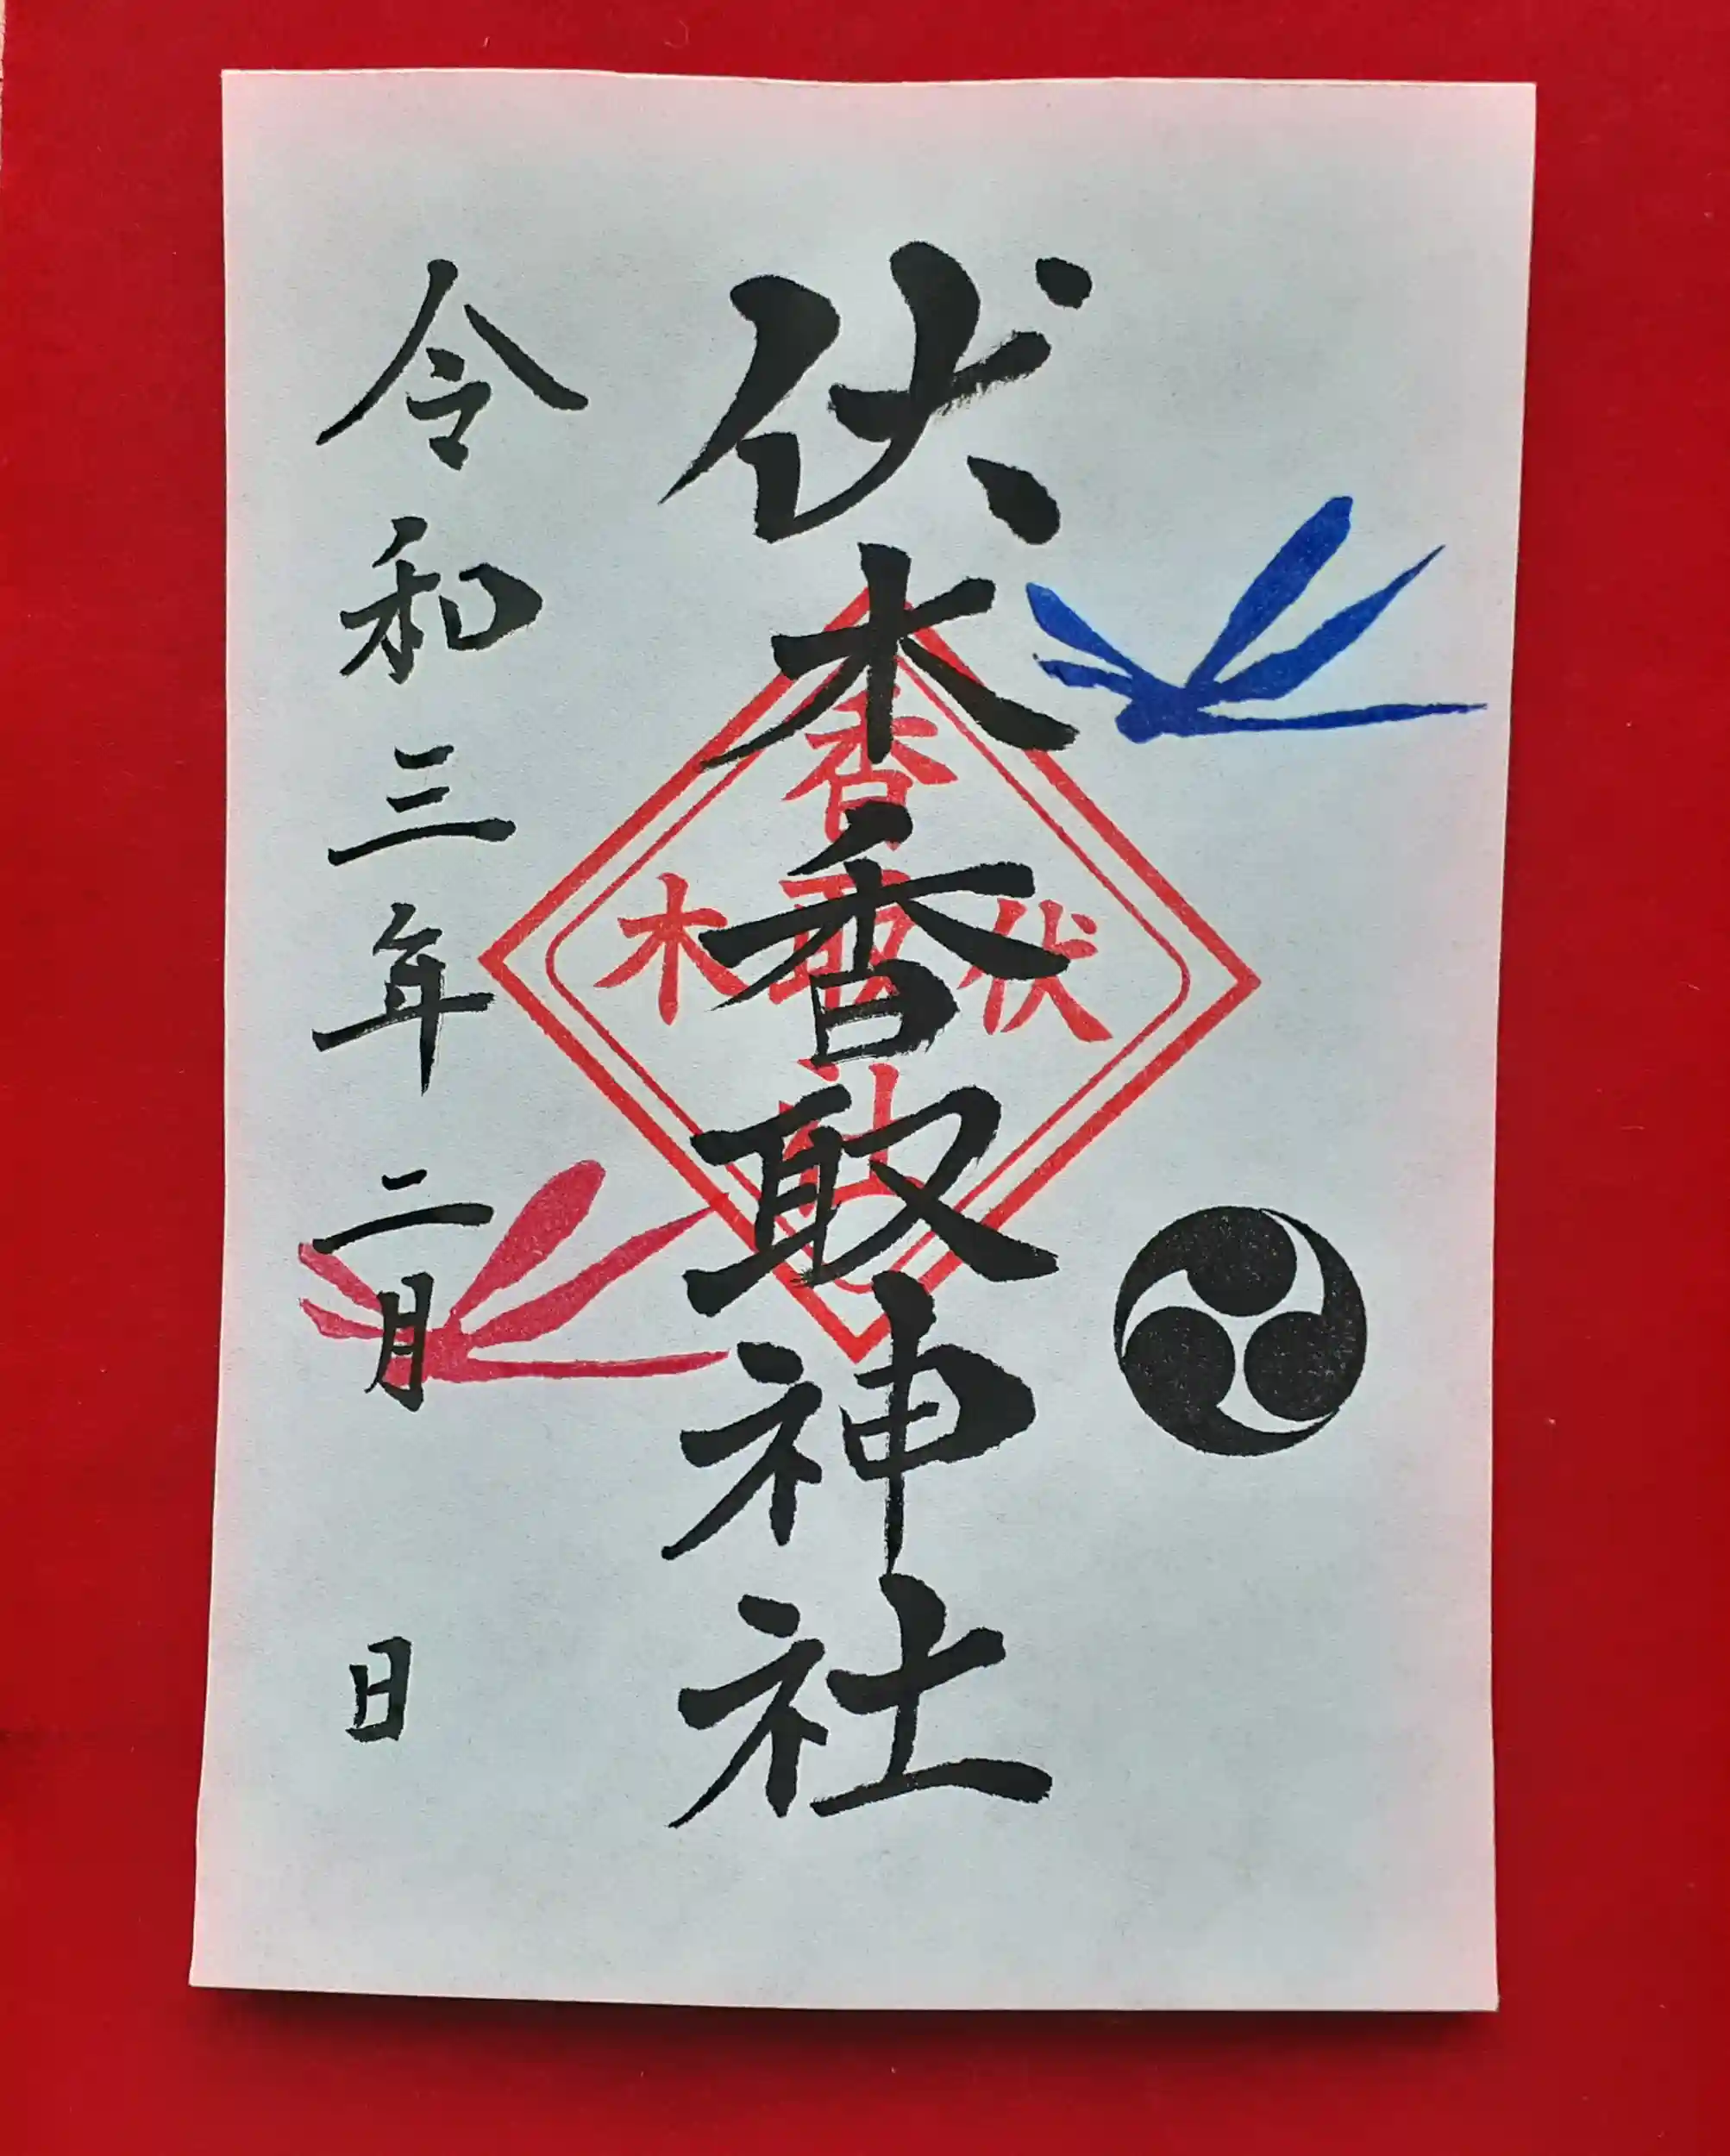 伏木香取神社
令和三年二月 日
香取
伏木
社